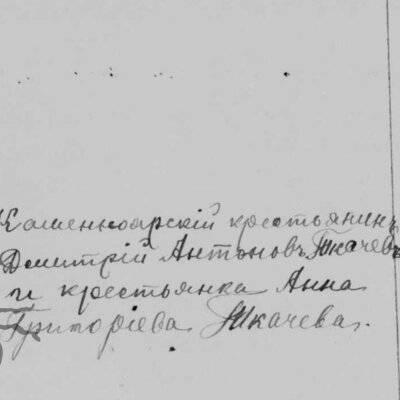 Каменноярскій крестьянинъ
Дмитрій Антоновъ Ткачевъ
и крестьянка Анна
Григоріева Ткачева.